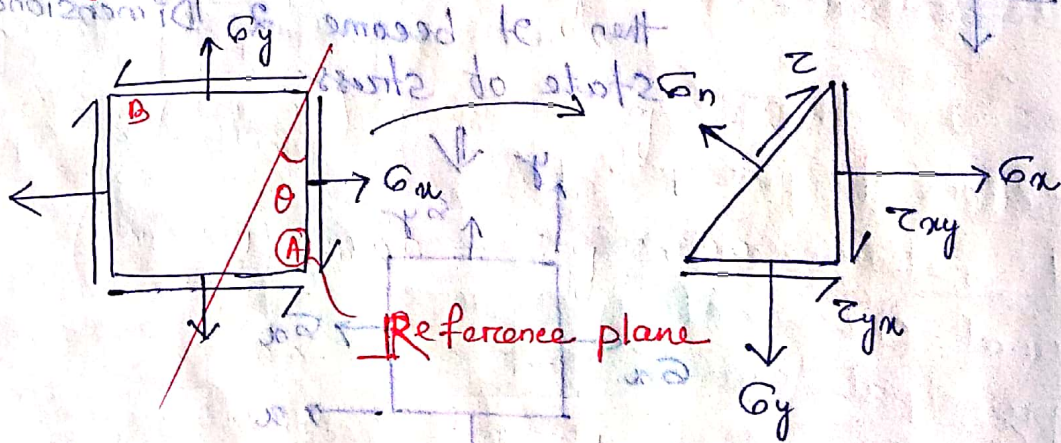 σy
B
θ
A
σx
Reference plane
τ
σn
σx
τxy
τyx
σy